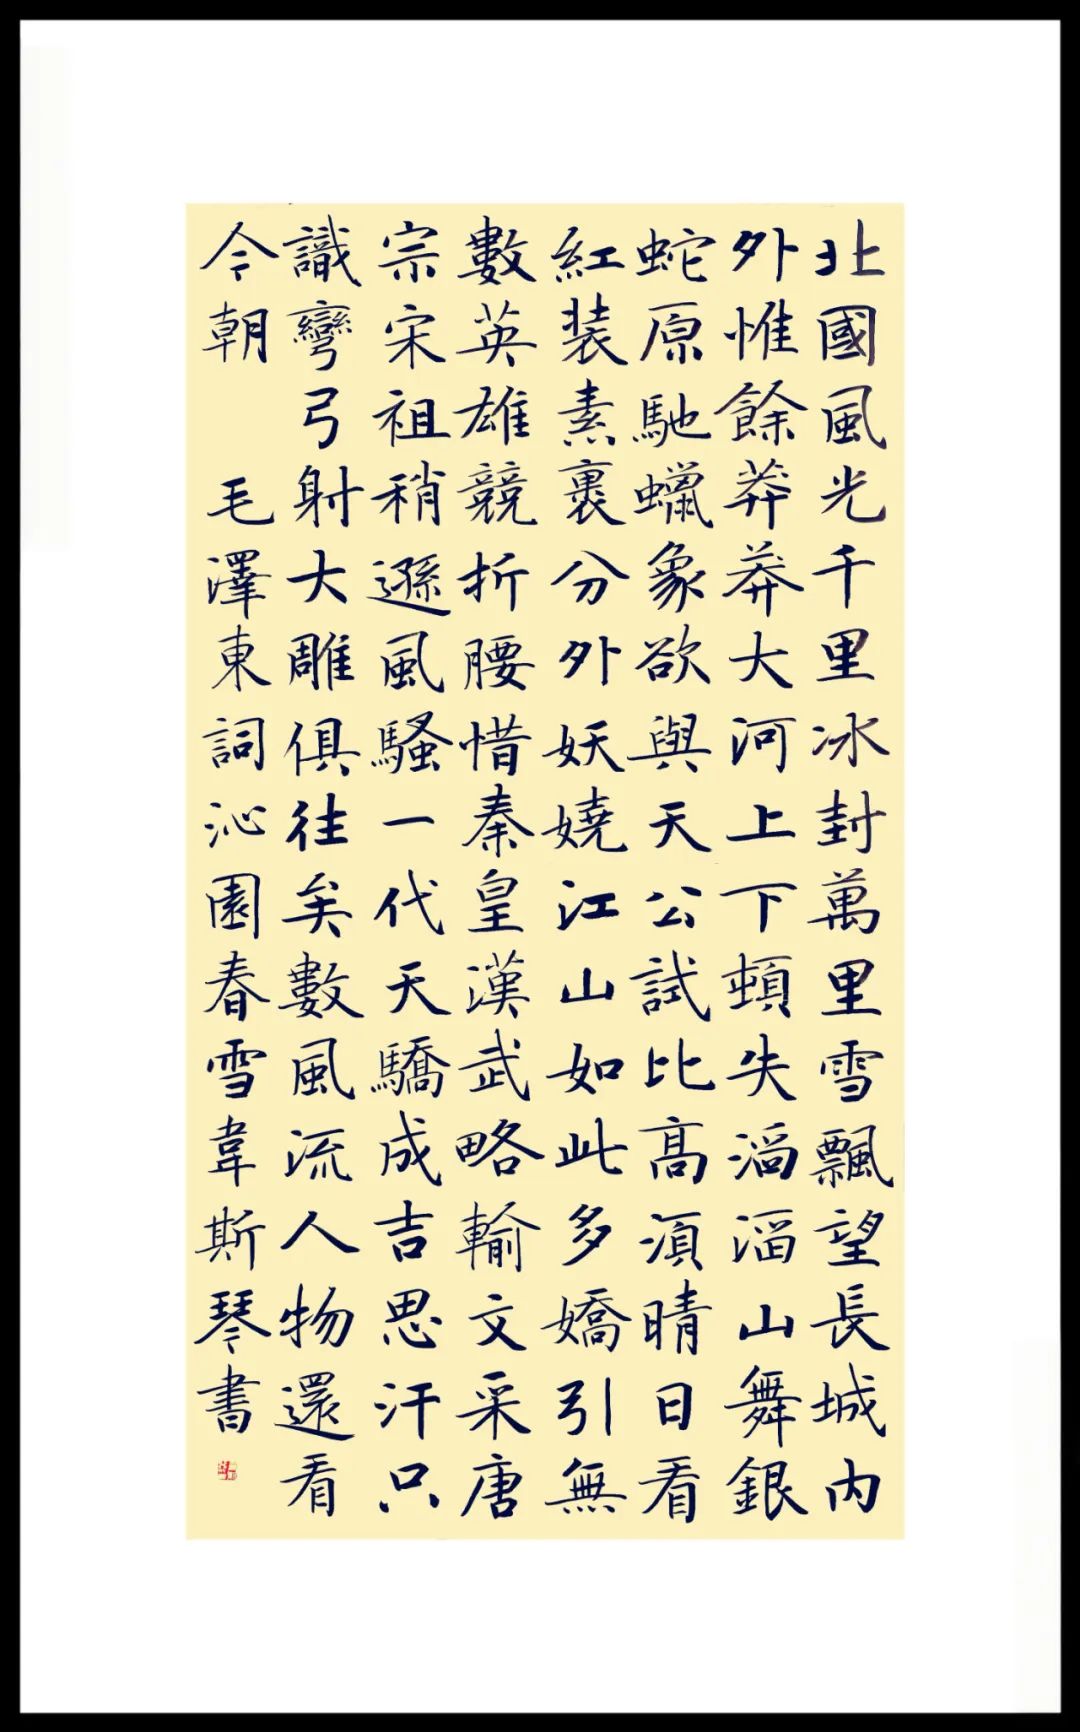 北國風光千里冰封萬里雪飄望長城內
外惟餘莽莽大河上下頓失滔滔山舞銀
蛇原馳蠟象欲與天公試比高湏晴日看
紅装素裹分外妖嬈江山如此多嬌引無
數英雄競折腰惜秦皇漢武略輸文采唐
宗宋祖稍遜風騷一代天驕成吉思汗只
識彎弓射大雕俱往矣數風流人物還看
今朝 毛澤東詞沁園春雪韋斯琴書